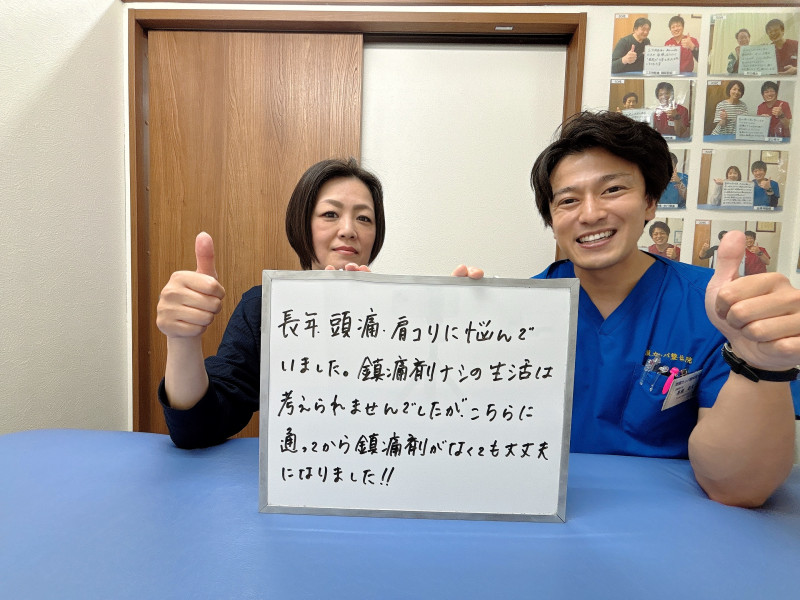 長年、頭痛、肩コリに悩んで
いました。鎮痛剤ナシの生活は
考えられませんでしたが、こちらに
通ってから鎮痛剤がなくても大丈夫
になりました!!
整体院